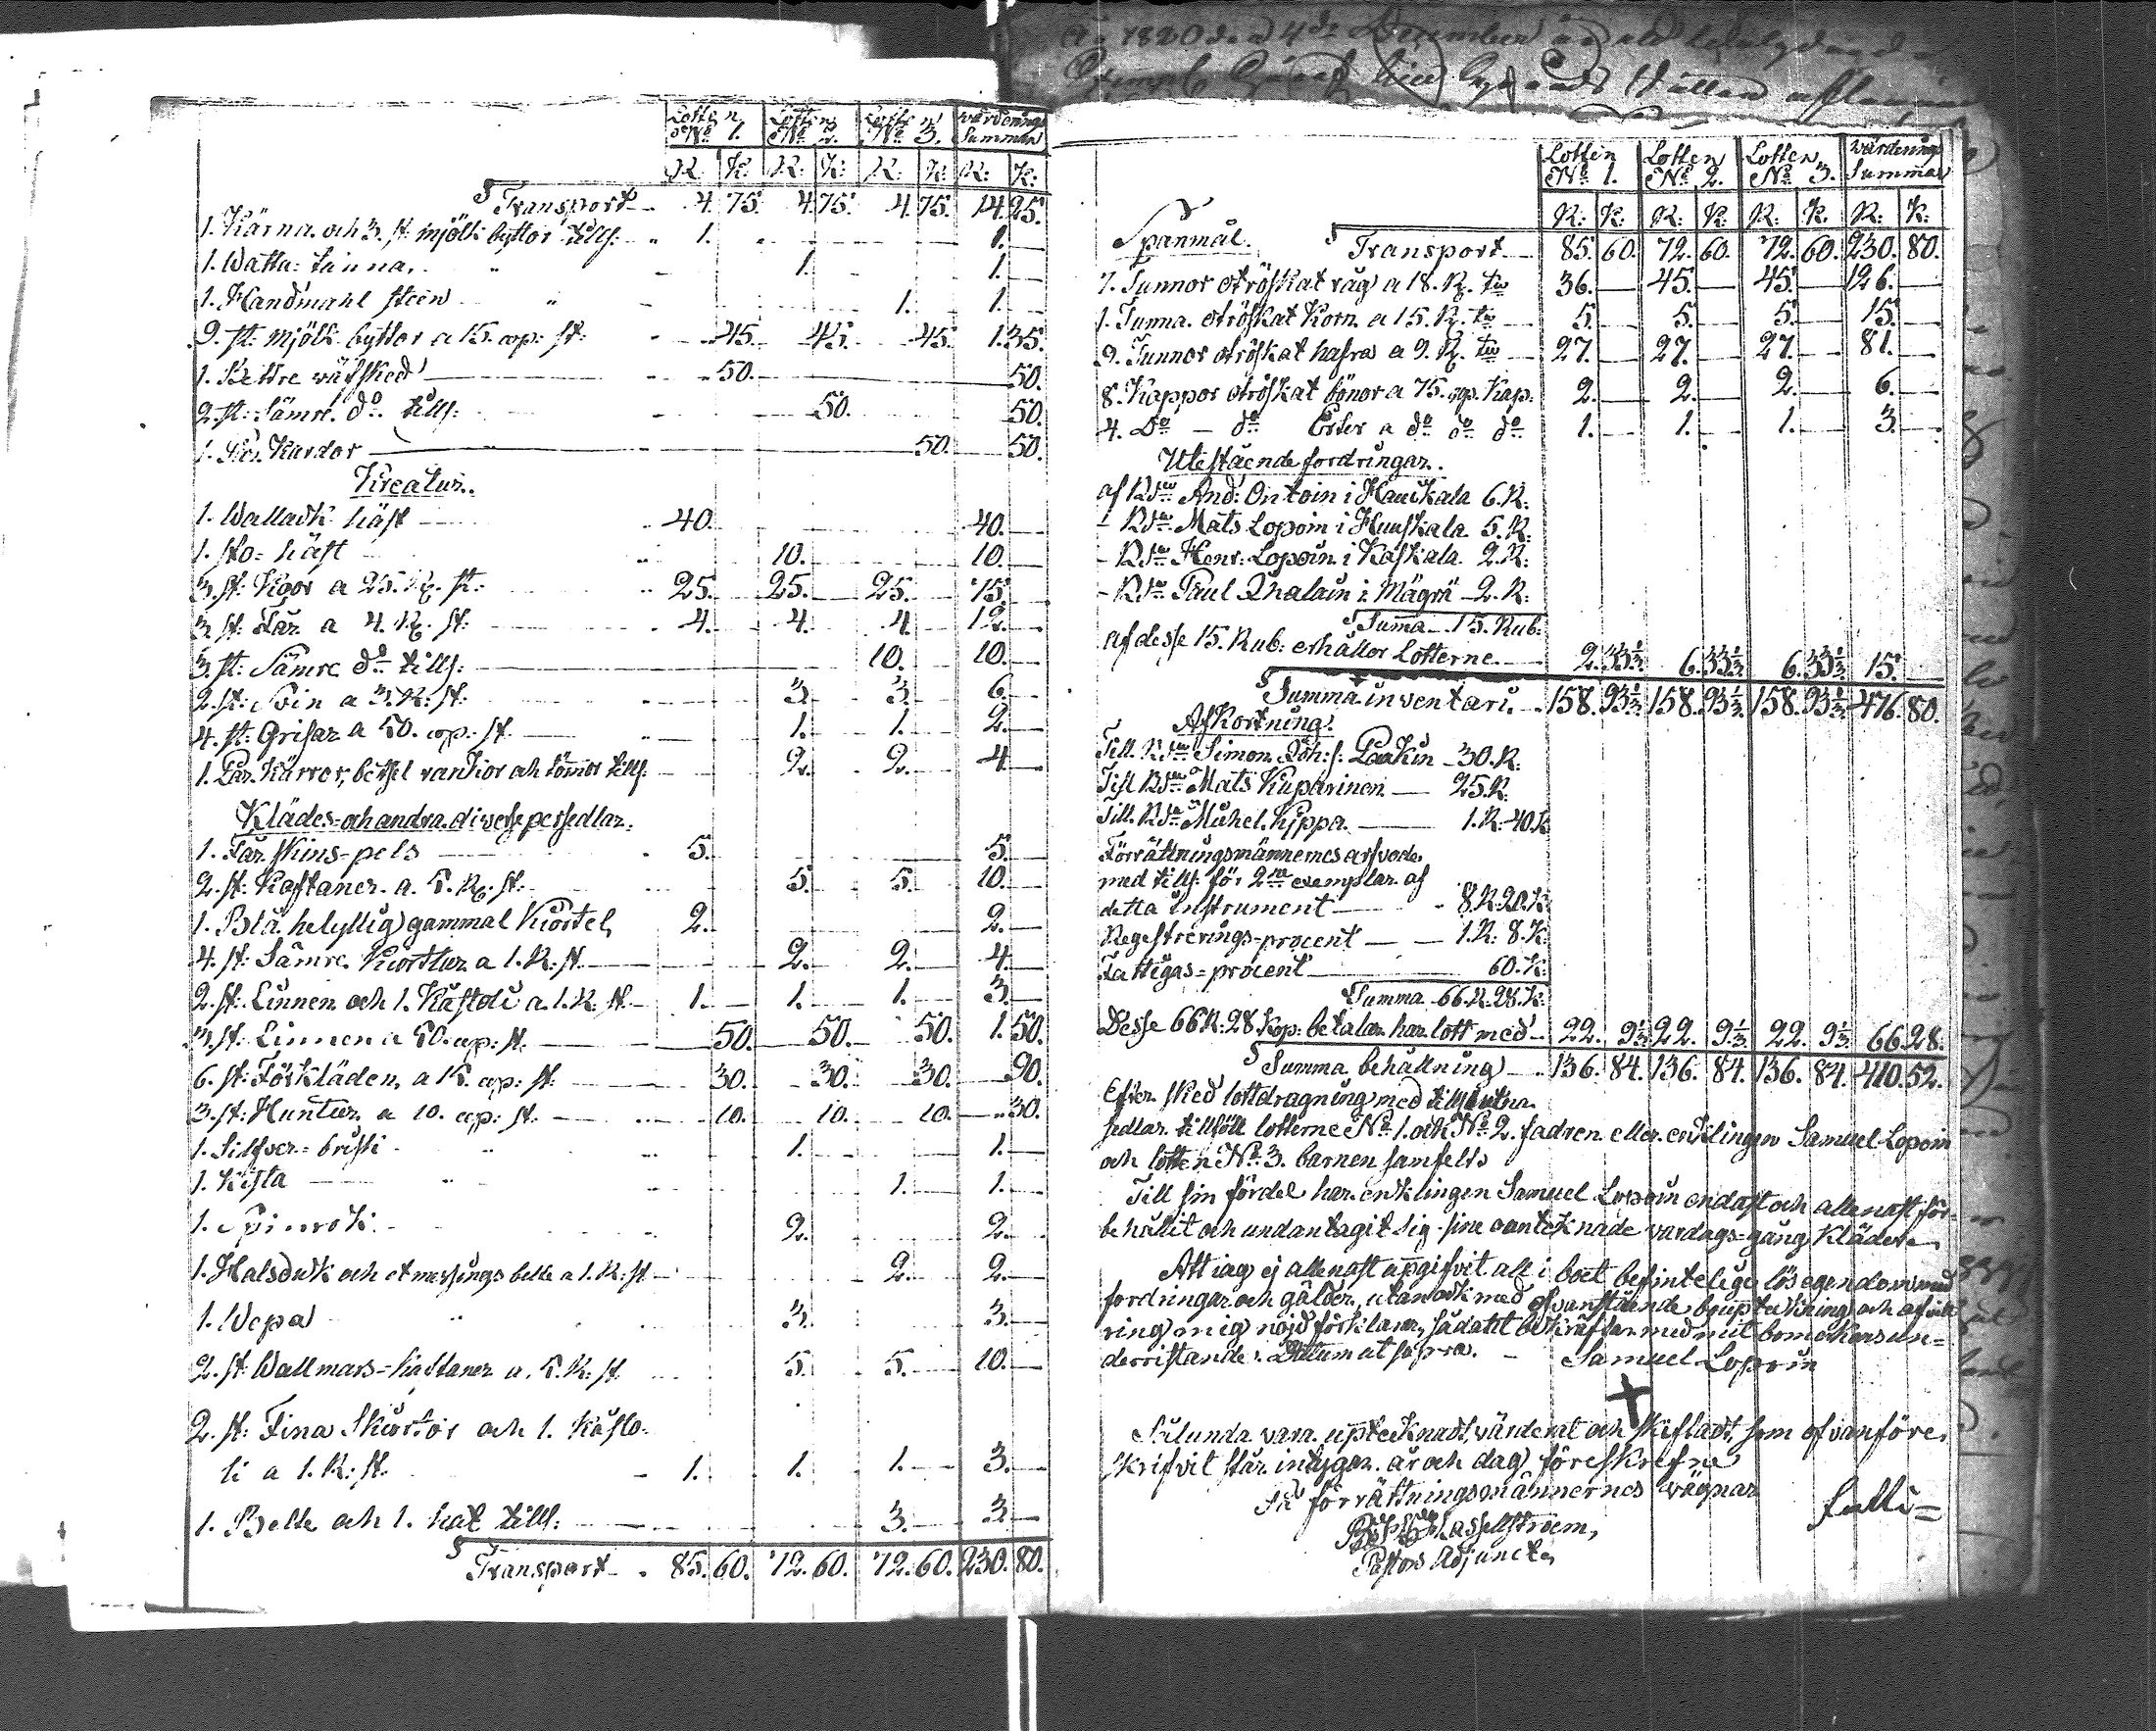 Lotten Lotten Lotten Värderings
No 1. No 2. No 3. Summan
R: K: R: K: R: K: R: K:
Transport 4. 75. 4. 75. 4. 75. 14. 25.
1. Kärna och 3. st. mjölk byttor tills: 1. 1.
1. Watta: tunna. 1. 1.
1. Handmahl steen 1. 1.
9. st: mjölk byttor a 15. cop: st: 45. 45. 45. 1. 35.
1. Bettre väfsked 50. 50.
2. st: Sämre do tills: 50. 50.
1. Par Kardor 50. 50.
Kreatur.
1. Wallack häst 40. 40.
1. sto: häst 10. 10.
3. st: Kor a 25. R. st: 25. 25. 25. 75.
3. st: Får a 4. R. st: 4. 4. 4. 12.
3. st: Sämre do tills: 10. 10.
2. st: Svin a 3. R: st. 3. 3. 6.
4. st: Grisar a 50. cop: st. 1. 1. 2.
1. Par Kärror, betsel rankior och tömor tills. 2. 2. 4.
Klädes- och andra diverse persedlar.
1. Fårskins-pels 5. 5.
2. st: Kaftaner a. 5. R. st: 5. 5. 10.
1. Blå helyllig gammal Kiortel 2. 2.
4. st: Sämre Kiortlar a 1. R: st. 2. 2. 4.
2. st: Linnen och 1. Kåstoli a. 1. R: st. 1. 1. 1. 3.
3. st: Linnen a 50. cop: st. 50. 50. 50. 1. 50.
6. st: Förkläden a 15. cop: st: 30. 30. 30. 90.
3. st: Huntur a 10. cop: st. 10. 10. 10. 30.
1. Silfver- briski 1. 1.
1. Kista 1. 1.
1. Spinrok 2. 2.
1. Halsduk och et messings belte a 1. R: st. 2. 2.
1. Wepa 3. 3.
2. st: Wallmars-Kaftaner a. 5. R: st. 5. 5. 10.
2. st: Fina Skiortor och 1. Kåsto-
li a 1. R: st. 1. 1. 1. 3.
1. Belte och 1. hat tills: 3. 3.
Transport 85. 60. 72. 60. 72. 60. 230. 80.
Lotten Lotten Lotten Värderings
No 1. No 2. No 3. Summan
R: K: R: K: R: K: R: K:
Spanmål. Transport 85. 60. 72. 60. 72. 60. 230. 80.
7. Tunnor otröskat råg a 18. R. tn 36. 45. 45. 126.
1. Tunna otröskat Korn a 15. R. tn 5. 5. 5. 15.
9. Tunnor otröskat hafra a 9. R. tn 27. 27. 27. 81.
8. Kappor otröskat bönor a 75. cop. Kap. 2. 2. 2. 6.
4. Do — do Erter a do do do 1. 1. 1. 3.
Utestående fordringar.
af Bdn And: Ontoin i Hauskala 6. R:
- Bdn Mats Lopoin i Hauskala 5. R:
- Bdn Henr: Lopoin i Kaskala 2. R:
- Bdn Paul Ihalain i Mägrä 2. R:
Summa 15. Rub:
af desse 15. Rub: erhåller Lotterne 2. 33⅓ 6. 33⅓ 6. 33⅓ 15.
Summa inventari. 158. 93⅓ 158. 93⅓ 158. 93⅓ 476. 80.
Afkortning.
Till Bdn Simon Joh: s: Paukin 30. R:
Till Bdn Mats Kuparinen 25. R.
Till Bdn Michel Kyppa 1. R: 40. K
Förrättningsmännernes arfvode
med tills: för 2ne exemplar af
detta instrument 8. R: 20. K:
Regestrerings-procent 1. R: 8. K:
Fattigas-procent 60. K:
Summa 66. R: 28. K:
Desse 66 R: 28 Kop: betalar har lott med 22. 9⅓ 22. 9⅓ 22. 9⅓ 66. 28.
Summa behållning 136. 84. 136. 84. 136. 84. 410. 52.
Efter sked lottdragning med tillslutna
sedlar tillföll lotterne No 1. och No 2. fadren eller enklingen Samuel Lopoin
och lotten No 3. barnen samfelt.
Till sin fördel har enklingen Samuel Lopoin endast och allenast för-
behållit och undantagit sig sine oantecknade vardags-gång Kläder.
Att iag ej allenast upgifvit all i boet befintelige lösegendom med
fordringar och gälder, utan ock med ofvanstående boupteckning och afvitt
ring mig nöjd förklarar, sådant bekräftar med mit bomerkens un-
derristande. Datum ut supra. Samuel Lopoin
Sålunda vara uptecknadt, värderat och skiftadt, som ofvanföre
skrifvit står intygar. år och dag föreskrefne
På förrättningsmännernes vägnar
Hasselstroem,
Pastors Adjunct.